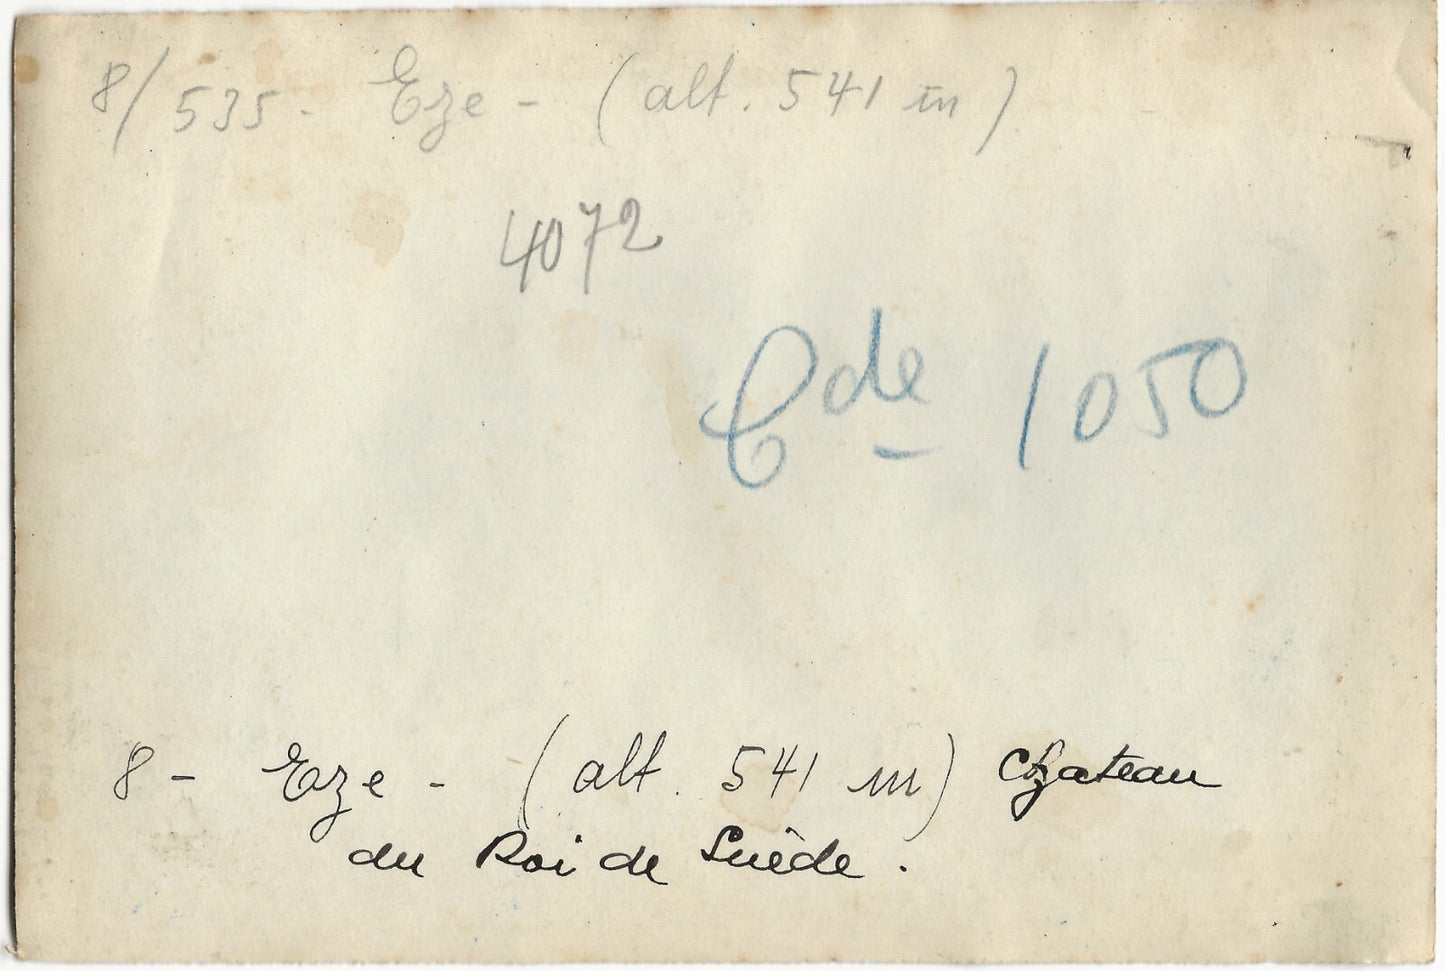 8/535 - Eze - (alt. 541 m)
4072
Cde 1050
8 - Eze - (alt. 541 m) Chateau
du Roi de Suède.